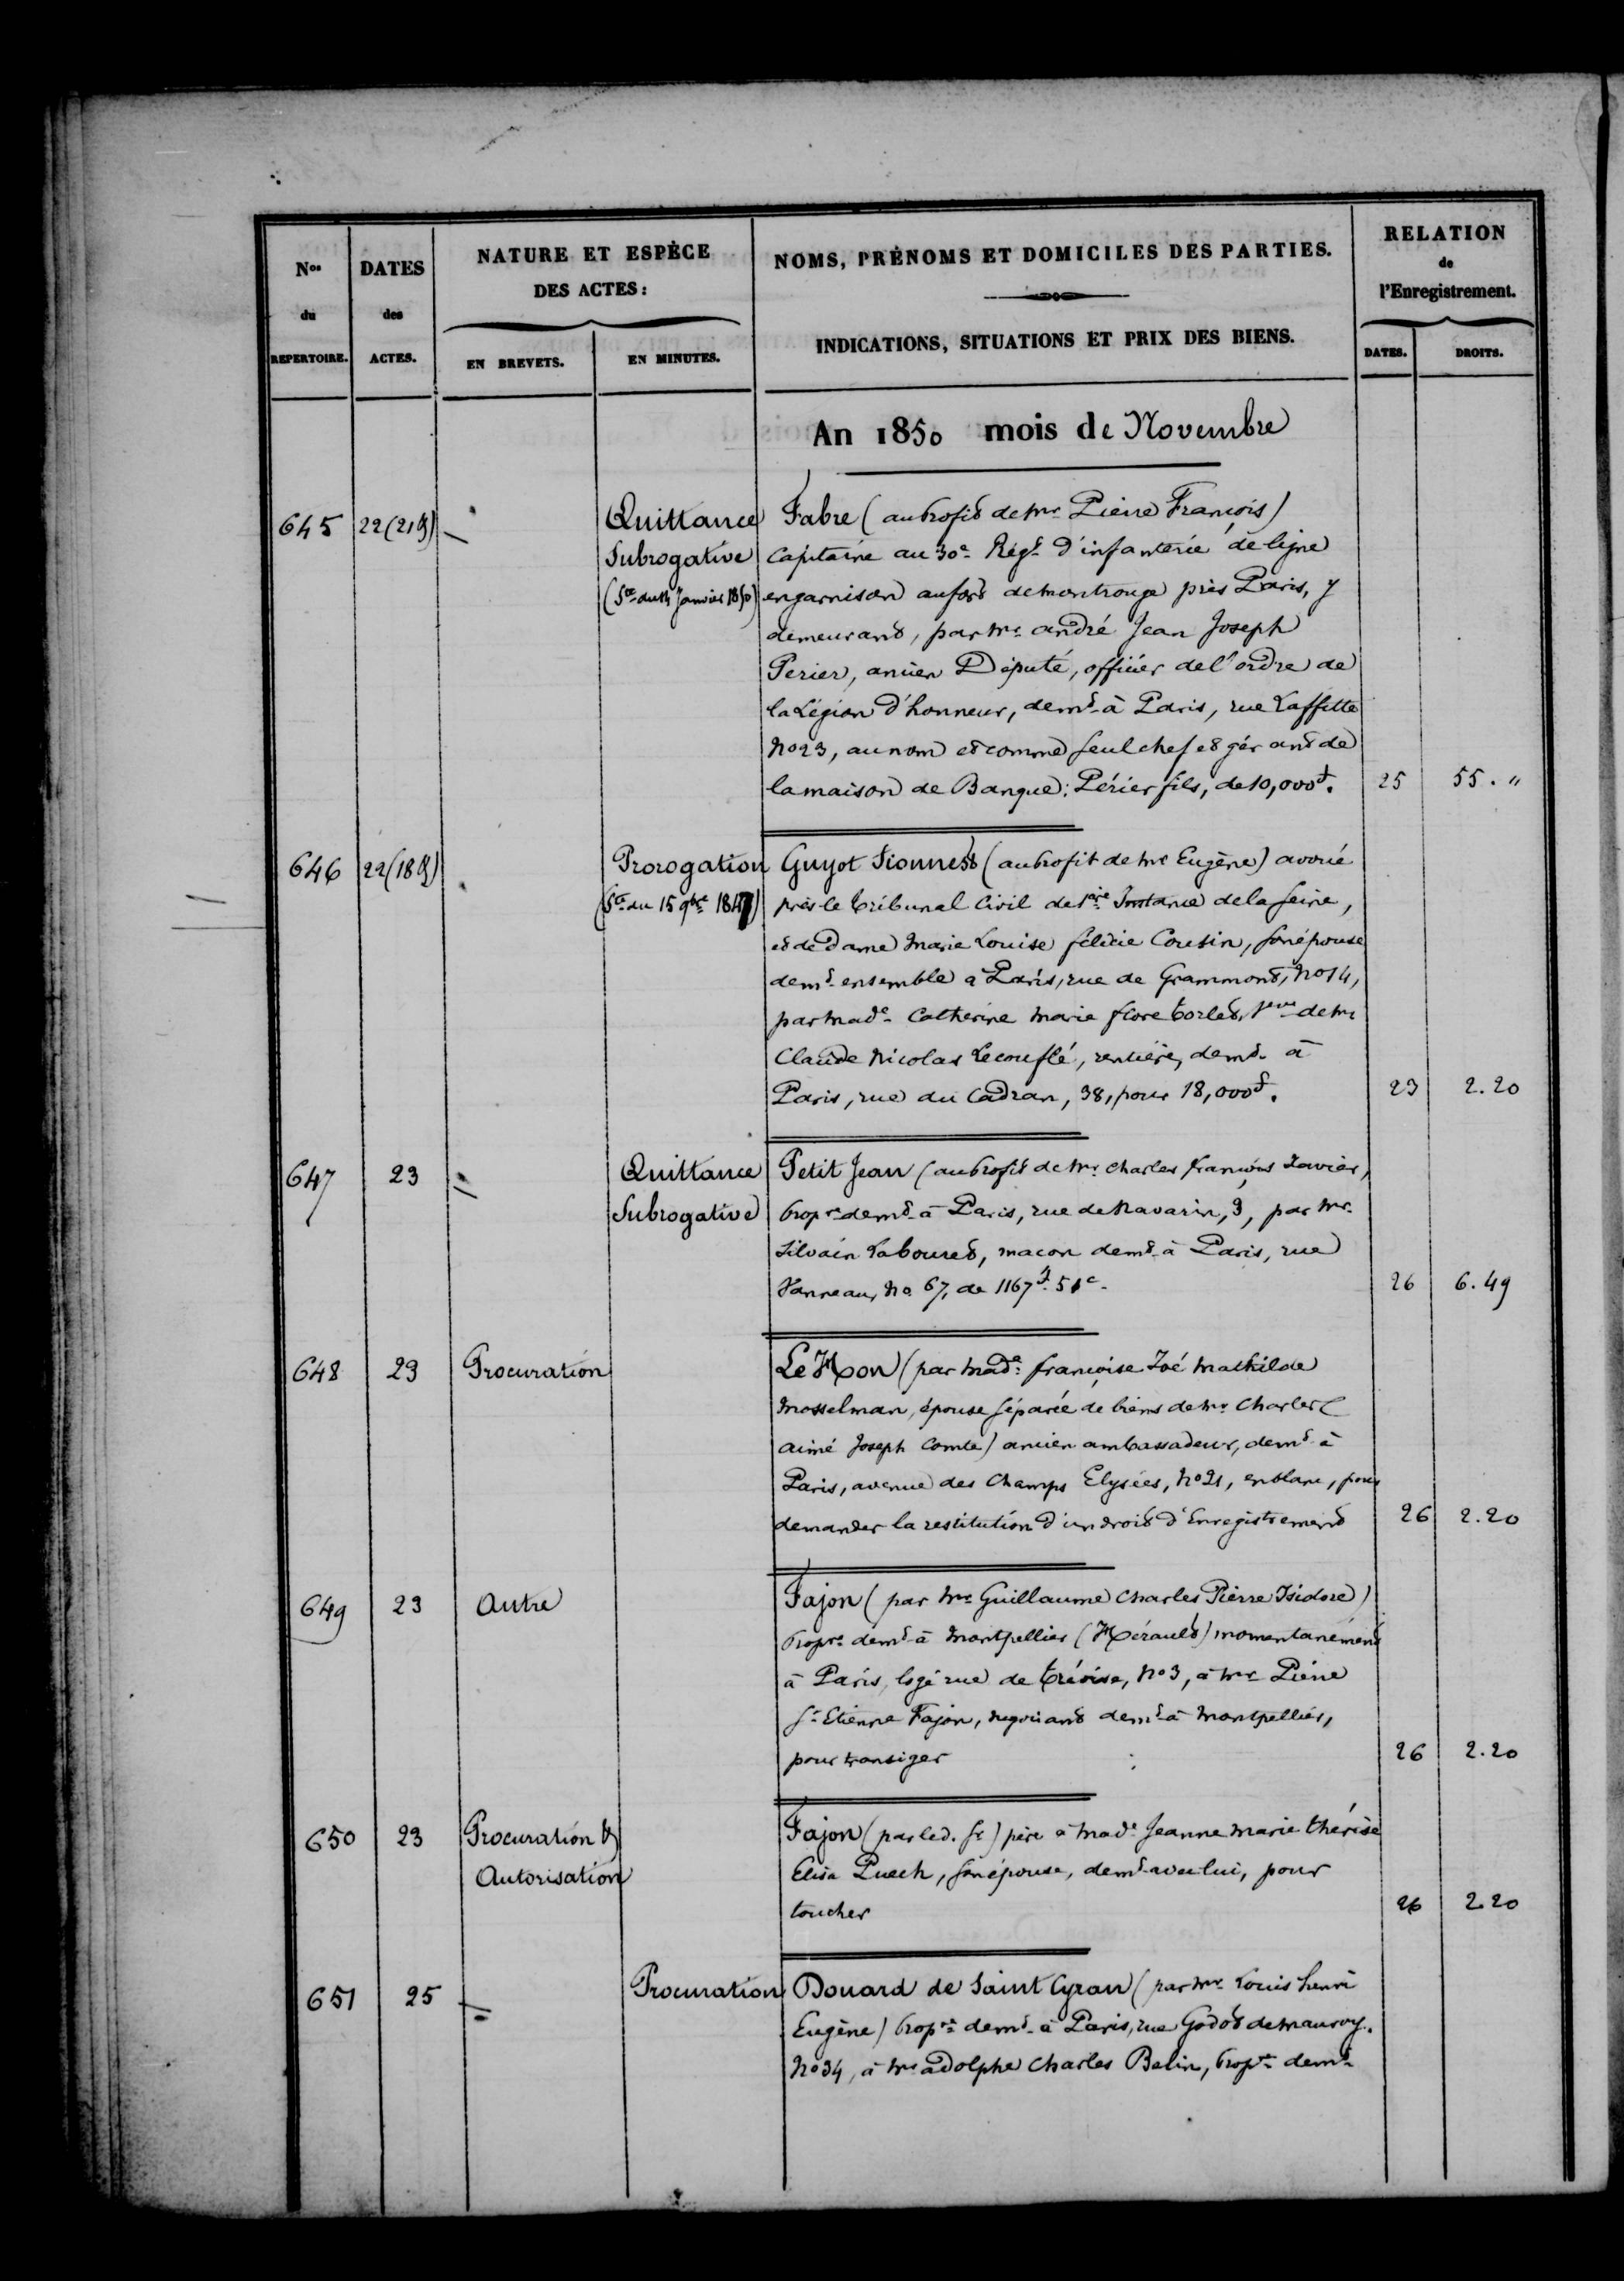 Nos du REPERTOIRE.
DATES des ACTES.
NATURE ET ESPÈCE DES ACTES:
EN BREVETS.
EN MINUTES.
NOMS, PRÉNOMS ET DOMICILES DES PARTIES.
INDICATIONS, SITUATIONS ET PRIX DES BIENS.
RELATION de l'Enregistrement.
DATES.
DROITS.
An 1850 mois de Novembre
645 22 (21 &) Quittance Fabre (au profit de Mr Pierre François)
Subrogative Capitaine au 30e Régt d'infanterie de ligne
(Janvier 1850) en garnison au fort de montrouge près Paris, y
demeurant, par Mr André Jean Joseph
Perier, ancien Député, officier de l'ordre de
la Légion d'honneur, demt à Paris, rue Laffitte
No 23, au nom et comme seul chef et gérant de
la maison de Banque: Périer fils, de 10,000f. 25 55. "
646 22 (18 &) Prorogation Guyot Sionnest (au profit de Mr Eugène) avoué
(Ste du 15 9bre 1847) près le tribunal Civil de 1ère Instance de la Seine,
et de Dame Marie Louise félicie Cousin, son épouse
demt ensemble à Paris, rue de Grammont, No 14,
par Made Catherine Marie flore, Veuve de Mr
Claude Nicolas Lecouflé, rentière, demt à
Paris, rue du Cadran, 38, pour 18,000f. 23 2.20
647 23 Quittance Petit Jean (au profit de Mr Charles François Xavier,
Subrogative propre demt à Paris, rue de Navarin, 9, par Mr
Silvain Labouret, macon demt à Paris, rue
Vanneau, No 67, de 1167f 51c. 26 6.49
648 23 Procuration Le Hon (par Made françoise Zoé Mathilde
Mosselman, épouse séparée de biens de Mr Charles
aimé Joseph Comte) ancien ambassadeur, demt à
Paris, avenue des Champs Elysées, No 21, en blanc, pour
demander la restitution d'un droit d'Enregistrement 26 2.20
649 23 Autre Fajon (par Mr Guillaume Charles Pierre Isidore)
propre demt à Montpellier (Hérault) momentanément
à Paris, logé rue de trévise, No 3, à Mr Pierre
St Etienne Fajon, négociant demt à Montpellier,
pour transiger 26 2.20
650 23 Procuration & Fajon (par led. Sr) père à Made Jeanne Marie thérèse
Autorisation Elisa Puech, son épouse, demt avec lui, pour
toucher 26 2.20
651 25 Procuration Douard de Saint Cyran (par Mr Louis henri
Eugène) propre demt à Paris, rue Godot de mauroy.
No 34, à Mr Adolphe Charles Belin, propre demt